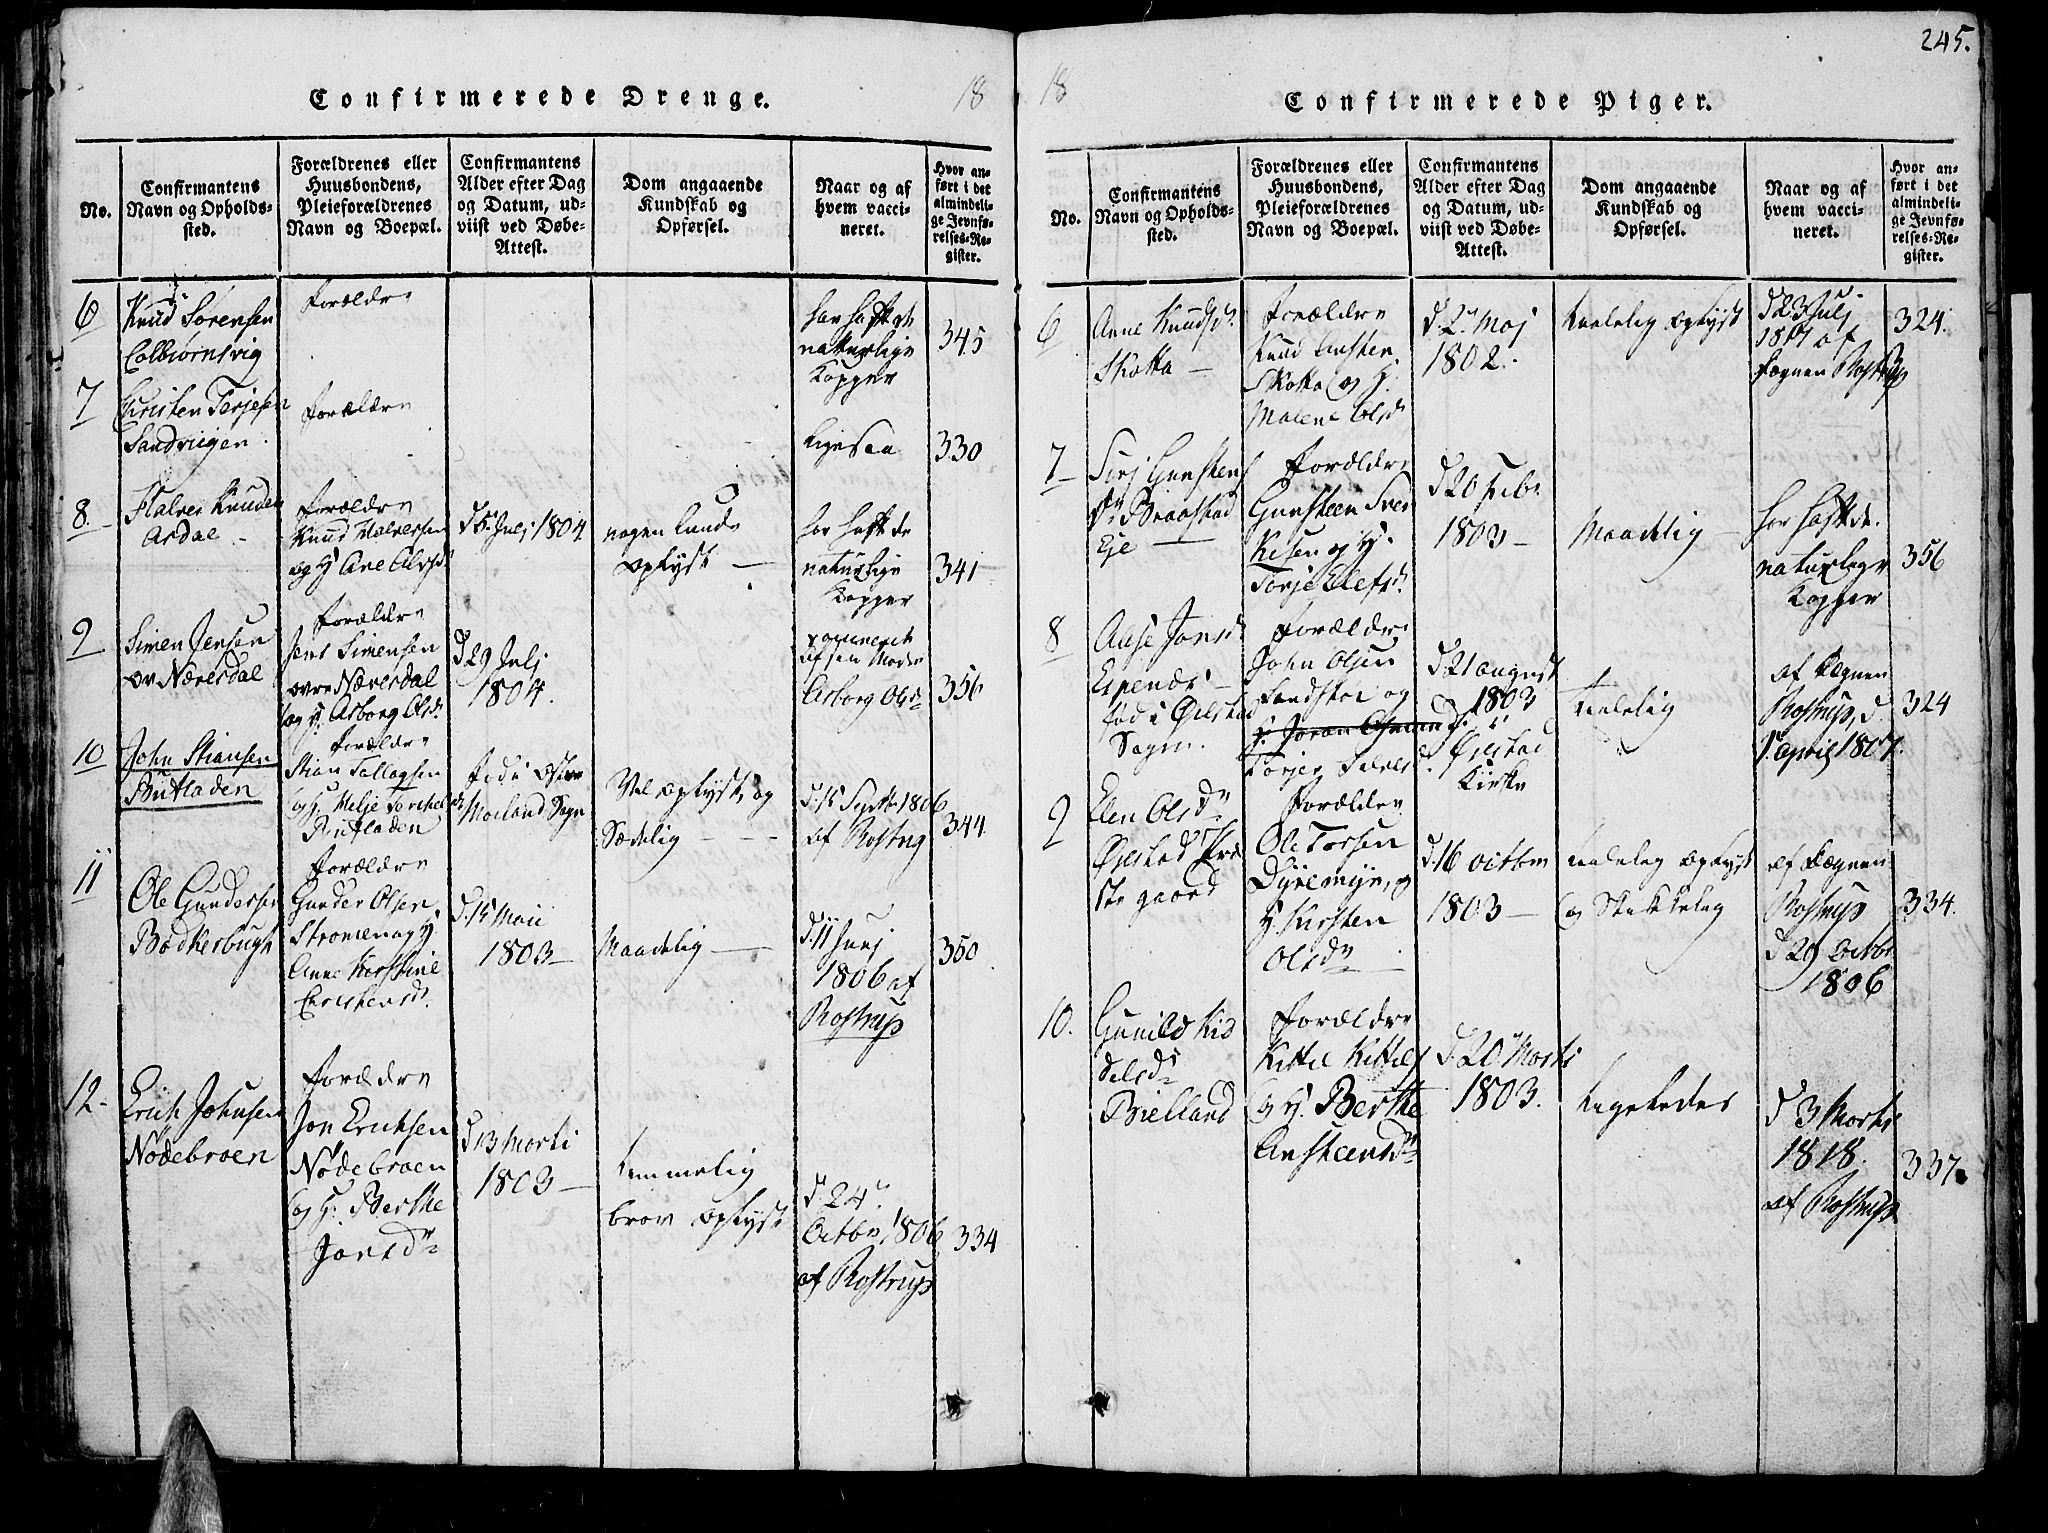 245.
Confirmerede Drenge.
18
No.
Confirmantens
Navn og Opholds-
sted.
Forældrenes eller
Huusbondens,
Pleieforældrenes
Navn og Boepæl.
Confirmantens
Alder efter Dag
og Datum, ud-
viist ved Døbe-
Attest.
Dom angaaende
Kundskab og
Opførsel.
Naar og af
hvem vacci-
neret.
Hvor an-
ført i det
almindeli-
ge Jevnfø-
relses-Re-
gister.
6
Knud Sörensen
Colbiørnsvig
Forældre
har haft de
naturlige
Kopper
345
7
Christen Terjesen
Sandviigen.
Forældre
ligesaa
330
8.
Halvor Knudsen
Aasdal
Forældre
Knud Halvorsen
og H. Ane
Juli 1804
nogenlunde
oplyst
har haft de
naturlige
Kopper
341
9
Simen Jensen
Næresdal
Forældre
Jens Simensen
Næresdal
og H. Asborg Olsdr
d 29 Juli
1804.
vaccineret
af sin Moder
Asborg Olsdr
356
10
John Stiansen
Rutladen
Forældre
Stian Tallagsen
og H.
Rutladen
Sogn
Vel oplyst, og
Sædelig
1806
af Rostrup
344
11
Ole Gundersen
Bødkerbugt
Forældre
Gunder Olsen
Strømmen og H.
Anne Kirstine
Christensdr.
d. 15 Maii
1803
Maadelig
d. 11 Junj
1806 af
Rostrup
350
12.
Erich Johnsen
Nödebroen
Forældre
Jon Erichsen
Nödebroen
og H. Berthe
Jonsdr
d 13 Marti
1803
temmelig
brav oplyst
d. 24
Octbr 1806
af Rostrup
334
18
Confirmerede Piger.
No.
Confirmantens
Navn og Opholds-
sted.
Forældrenes eller
Huusbondens,
Pleieforældrenes
Navn og Boepæl.
Confirmantens
Alder efter Dag
og Datum, ud-
viist ved Døbe-
Attest.
Dom angaaende
Kundskab og
Opførsel.
Naar og af
hvem vacci-
neret.
Hvor an-
ført i det
almindeli-
ge Jevnfø-
relses-Re-
gister.
6
Anne Knudsdr.
Skotta
Forældre
Knud
Skotta og H.
Malene Olsdr
d. 2 Maj
1802.
taalelig oplyst
d 23 Julj
af
Degnen Rostrup
324.
7
Braastad
Eje
Forældre
Gunsteen
og H.
d 20 Febr
1803
Maadelig
har haft de
naturlige
Kopper
356
8
Aase Jonsdr
Espenæs
fød i Øiestad
Sogn.
Forældre
John Olsen
og
d. 21 august
1803
i
Øiestad
Kirke
taalelig
af Degnen
Rostrup, d.
april 1807.
324
9
Elen Olsdr
Øiestad Præ
ste gaard
Forældre
Ole Torsen
Dyremyr, og
H. Kirsten
Olsdr
d. 16 octbr
1803
taalelig oplyst
og Skikkelig
af Degnen
Rostrup
d 29 Octbr
1806
334.
10.
Gunild Kid
delsdr
Bielland
Forældre
Kittel Kittels
og H. Berthe
Ansteensdr
d. 20 Marti
1803.
ligeledes
d 3 Marti
1818.
af Rostrup
337.